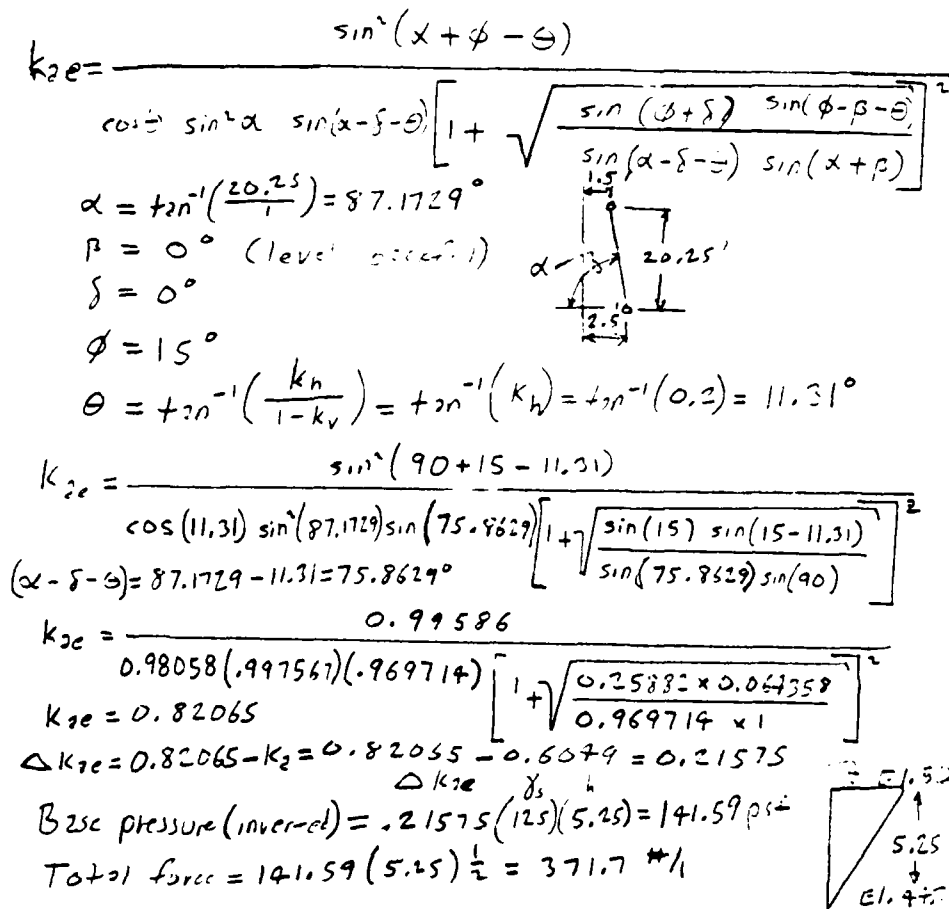 kae = sin²(α + φ - θ)
cosθ sin²α sin(α-δ-θ) [1 + √ sin (φ+δ) sin(φ-β-θ)
sin(α-δ-θ) sin(α+β) ]²
α = tan⁻¹(20.25/1) = 87.1729°
β = 0° (level
δ = 0°
φ = 15°
1.5'
α
20.25'
2.5'
θ = tan⁻¹(kh/1-kv) = tan⁻¹(Kh) = tan⁻¹(0.2) = 11.31°
Kae = sin²(90+15-11.31)
cos(11.31) sin²(87.1729) sin(75.8629) [1 + √ sin(15) sin(15-11.31)
sin(75.8629) sin(90) ]²
(α-δ-θ) = 87.1729-11.31 = 75.8629°
kae = 0.99586
0.98058(.997567)(.969714) [1 + √ 0.25882 x 0.064358
0.969714 x 1 ]²
Kae = 0.82065
ΔKae = 0.82065 - Ka = 0.82065 - 0.6049 = 0.21575
ΔKae γs h
Base pressure (inverted) = .21575(125)(5.25) = 141.59 psf
Total force = 141.59(5.25) ½ = 371.7 #/1
5.25